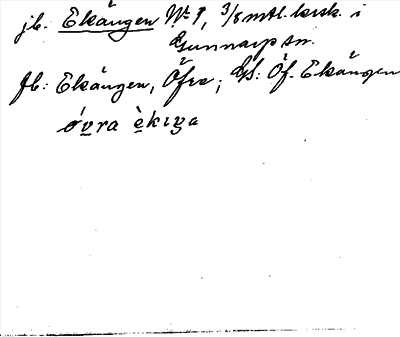 jb. Ekängen No 1, 3/8 mtl. krsk. i
Gunnarp sn.
fb: Ekängen, Öfre; GS: Öf. Ekängen
óv̲ra è̲kıŋa